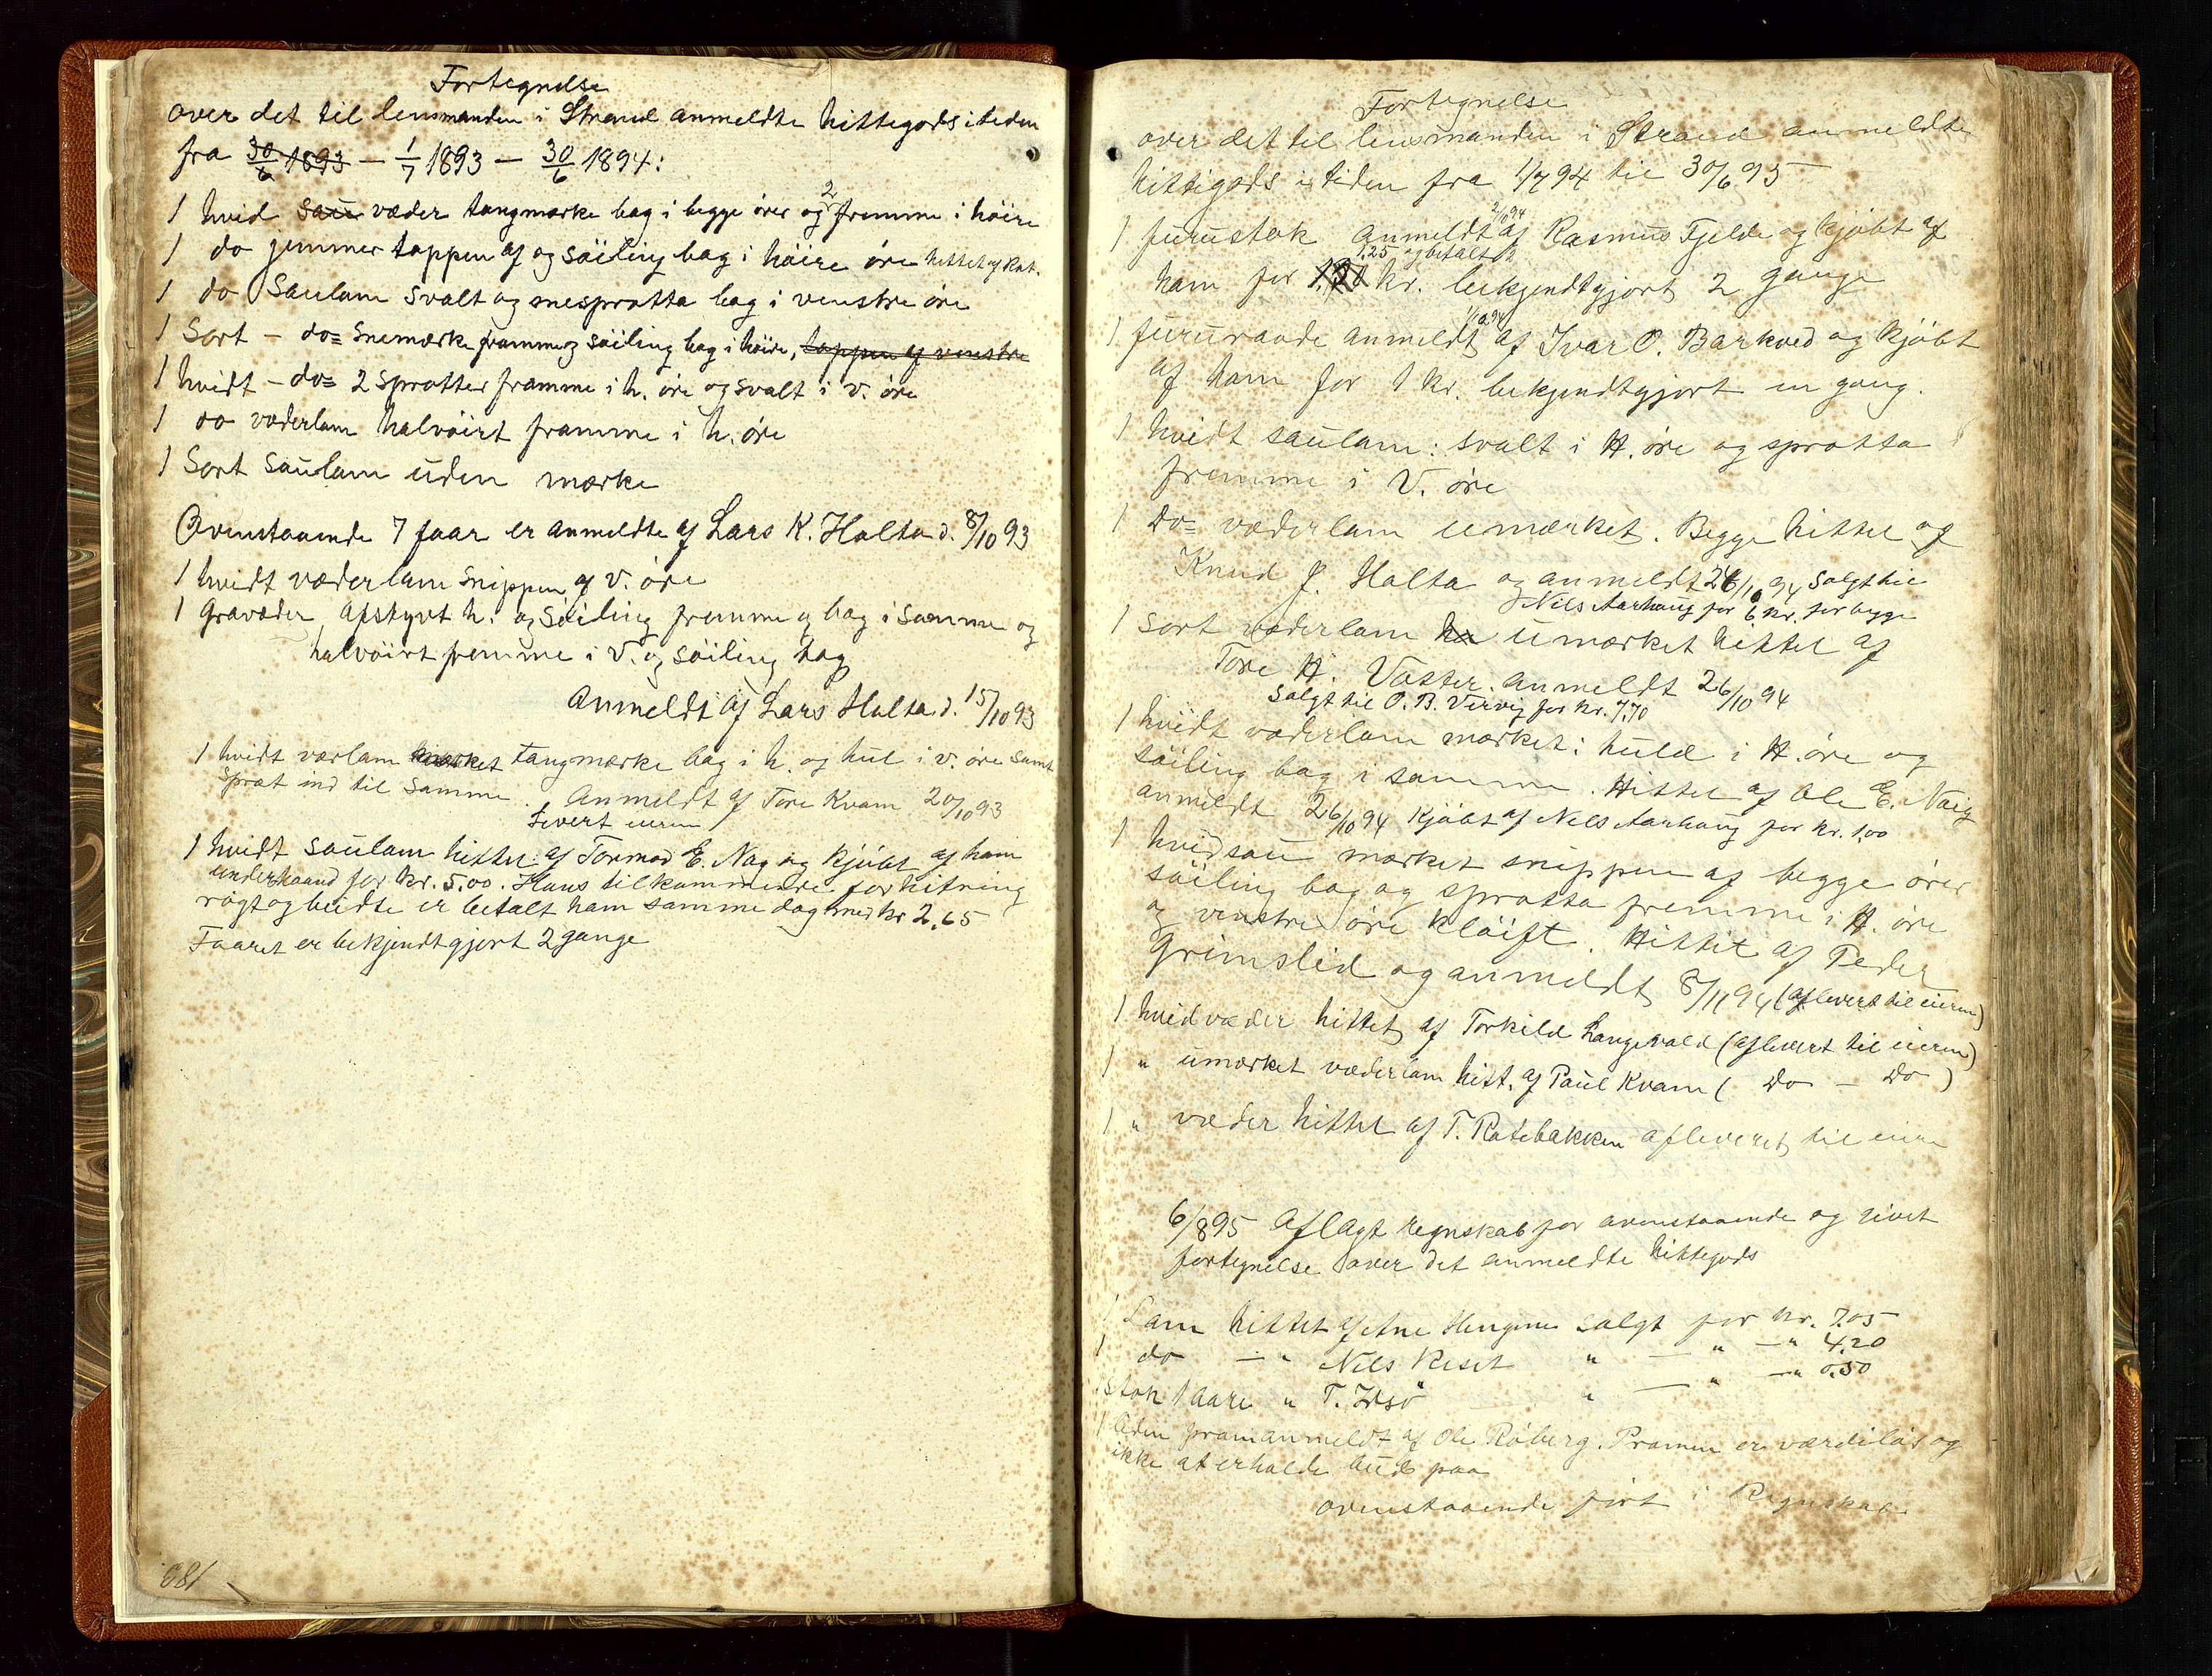 Fortegnelse
over det til lensmanden i Strand anmeldte hittegods i tiden
fra 30/6 1893 — 1/7 1893 — 30/6 1894:
1 hvid sau væder tangmærke bag i begge ører og 2 fremme i høire
1 do gimmer toppen af og söiling bag i høire øre hittet af Kat.
1 do Saulam Svalt og mesprotta bag i venstre øre
1 Sort — do= Snemærke framme og söiling bag i høire, toppen af venstre
1 hvidt — do= 2 sprotter framme i h. øre og svalt i v. øre
1 do væderlam halvöirt framme i h. øre
1 Sort Saulam uden mærke
Ovenstaaende 7 faar er anmeldte af Lars K. Holta d. 8/10 93
1 hvidt væderlam snippen af v. øre
1 Gravæder, Afstyvt h. og söiling fremme og bag i samme og
halvöirt fremme i V. og söiling bag
Anmeldt af Lars Holta d. 15/10 93
1 hvidt værlam mærket tangmærke bag i h. og hul i v. øre samt
spræt ind til samme. Anmeldt af Tore Kvam 20/10 93
Levert eieren
1 hvidt Saulam hittet af Tormod E. Nag og kjöbt af ham
underhaand for kr. 5.00. Hans tilkommende for hitning
rögt og beide er betalt ham samme dag med kr 2.65
Faaret er bekjendtgjort 2 gange
Fortegnelse
over det til lensmanden i Strand anmeldte
hittigods i tiden fra 1/7 94 til 30/6 95
1 furustok anmeldt 2/10 94 af Rasmus Fjelde og kjöbt af
1,25 og betalt
ham for kr. bekjendtgjort 2 gange
1 fururaade anmeldt 1/10 94 af Ivar O. Barkved og kjöbt
af ham for 1 kr. bekjendtgjort en gang.
1 hvidt saulam: svalt i H. øre og sprotta
fremme i V. öre
1 do= væderlam umærket. Begge hittet af
Knud J. Holta og anmeldt 26/10 94 Solgt til
Nils Aarhaug for 6 kr. for begge
1 Sort væderlam umærket hittet af
Tore H. Vaster. anmeldt 26/10 94
Solgt til O. B. Vervig for kr. 7,70
1 hvidt væderlam mærket: huld i H. øre og
söiling bag i samme. Hittet af Ole E. Nag
anmeldt 26/10 94 kjöbt af Nils Aarhaug for kr. 1,00
1 hvid sau mærket snippen af begge ører
söiling bag og sprotta fremme i H. øre
og venstre øre klöift. Hittet af Peder
Grimslid og anmeldt 8/11 94 (aflevert til eieren)
1 hvid væder hittet af Torkild Langevald (aflevert til eieren)
1 " umærket væderlam hitt. af Paul Kvam ( Do — Do )
1 " væder hittet af T. Rotebakken afleveret til eieren
6/8 95 Aflagt regnskab for ovenstaaende og givet
fortegnelse over det anmeldte hittegods
1 Lam hittet af Ane Hengene solgt for kr. 7.05
1 do — " Nils Reset " — " — " 4.20
1 stok 1 aare " T. Idsö " — " — " 0.50
1 liden pram anmeldt af Ole Röberg. Pramen er værdilös og
ikke at erholde buds paa
ovenstaaende fört i Regnskab